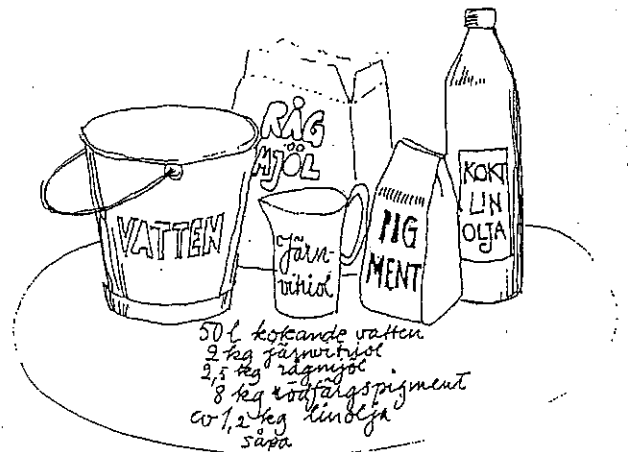 RÅG
MJÖL
VATTEN
Järn-
vitriol
PIG
MENT
KOKT
LIN
OLJA
50 l kokande vatten
2 kg järnvitriol
2,5 kg rågmjöl
8 kg rödfärgspigment
ca 1,2 kg linolja
såpa